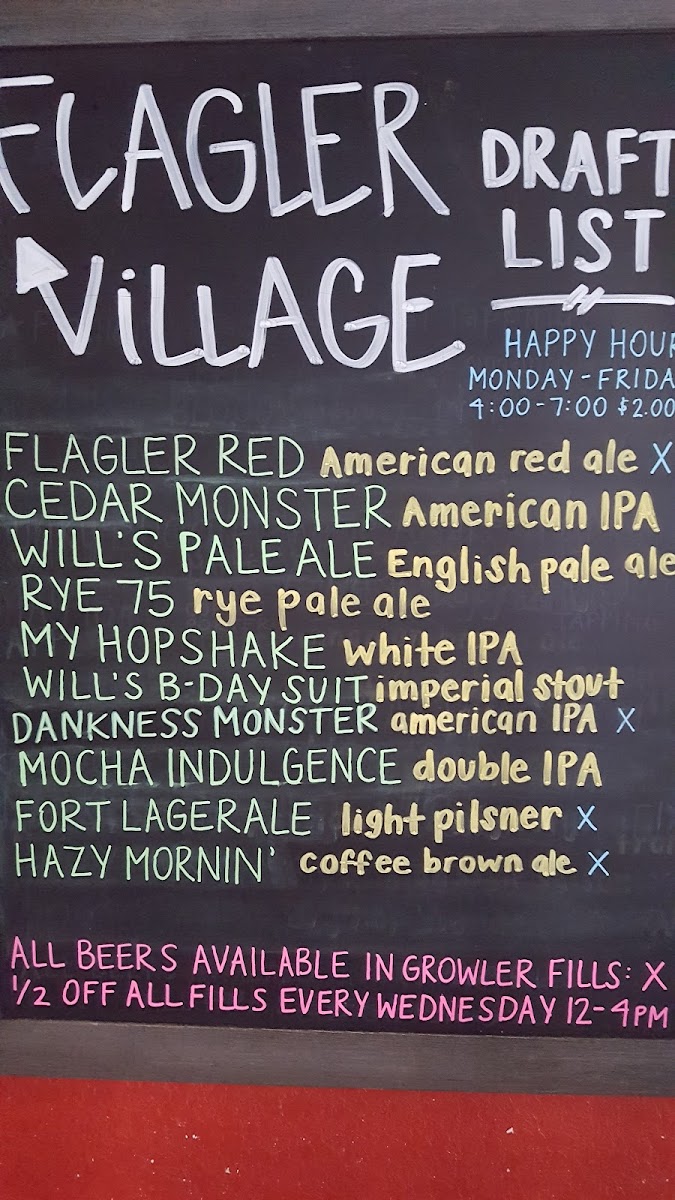 FLAGLER
VILLAGE
DRAFT
LIST
HAPPY HOUR
MONDAY-FRIDA
4:00-7:00 $2.00
FLAGLER RED American red ale X
CEDAR MONSTER American IPA
WILL'S PALE ALE English pale ale
RYE 75 rye pale ale
MY HOPSHAKE white IPA
WILL'S B-DAY SUIT imperial stout
DANKNESS MONSTER american IPA X
MOCHA INDULGENCE double IPA
FORT LAGERALE light pilsner X
HAZY MORNIN' coffee brown ale X
ALL BEERS AVAILABLE IN GROWLER FILLS: X
1/2 OFF ALL FILLS EVERY WEDNESDAY 12-4PM